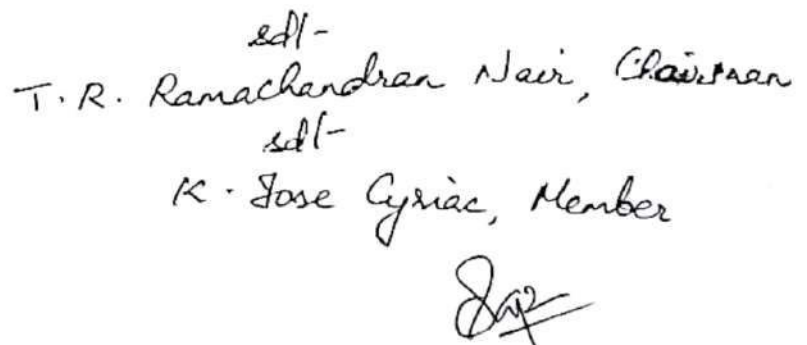 sd/-
T. R. Ramachandran Nair, Chairman
sd/-
K. Jose Cyriac, Member